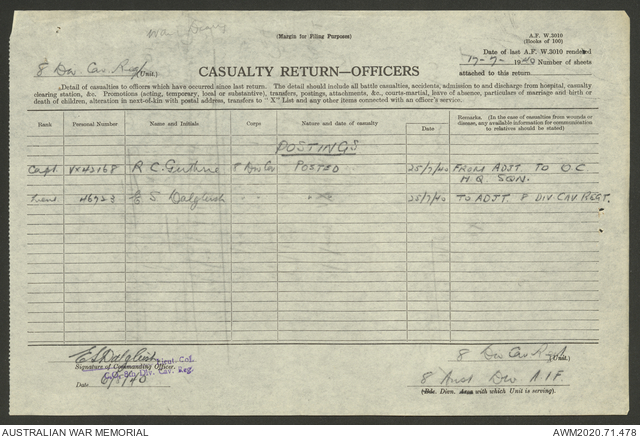 War Diary
(Margin for Filing Purposes)
A.F. W.3010
(Books of 100)
8 Div Cav Regt (Unit.)
Date of last A.F. W.3010 rendered
17-7-1940 Number of sheets
attached to this return.
CASUALTY RETURN—OFFICERS
Detail of casualties to officers which have occurred since last return. The detail should include all battle casualties, accidents, admission to and discharge from hospital, casualty
clearing station, &c. Promotions (acting, temporary, local or substantive), transfers, postings, attachments, &c., courts-martial, leave of absence, particulars of marriage and birth or
death of children, alteration in next-of-kin with postal address, transfers to "X" List and any other items connected with an officer's service.
Rank Personal Number Name and Initials Corps Nature and date of casualty Date Remarks (In the case of casualties from wounds or disease, any available information for communication to relatives should be stated)
POSTINGS
Capt. VX43168 R C. Guthrie 8 Div Cav POSTED 25/7/40 FROM ADJT TO OC
H.Q. SQN.
Lieut 46723 E S Dalgleish " " " 25/7/40 TO ADJT 8 DIV CAV REGT.
E S Dalgleish Lieut. Col.
Signature of Commanding Officer.
Div. Cav. Reg.
Date /8/40
8 Div Cav Regt (Unit.)
8 Aust Div A.I.F.
Dien. Area with which Unit is serving).
AUSTRALIAN WAR MEMORIAL
AWM2020.71.478